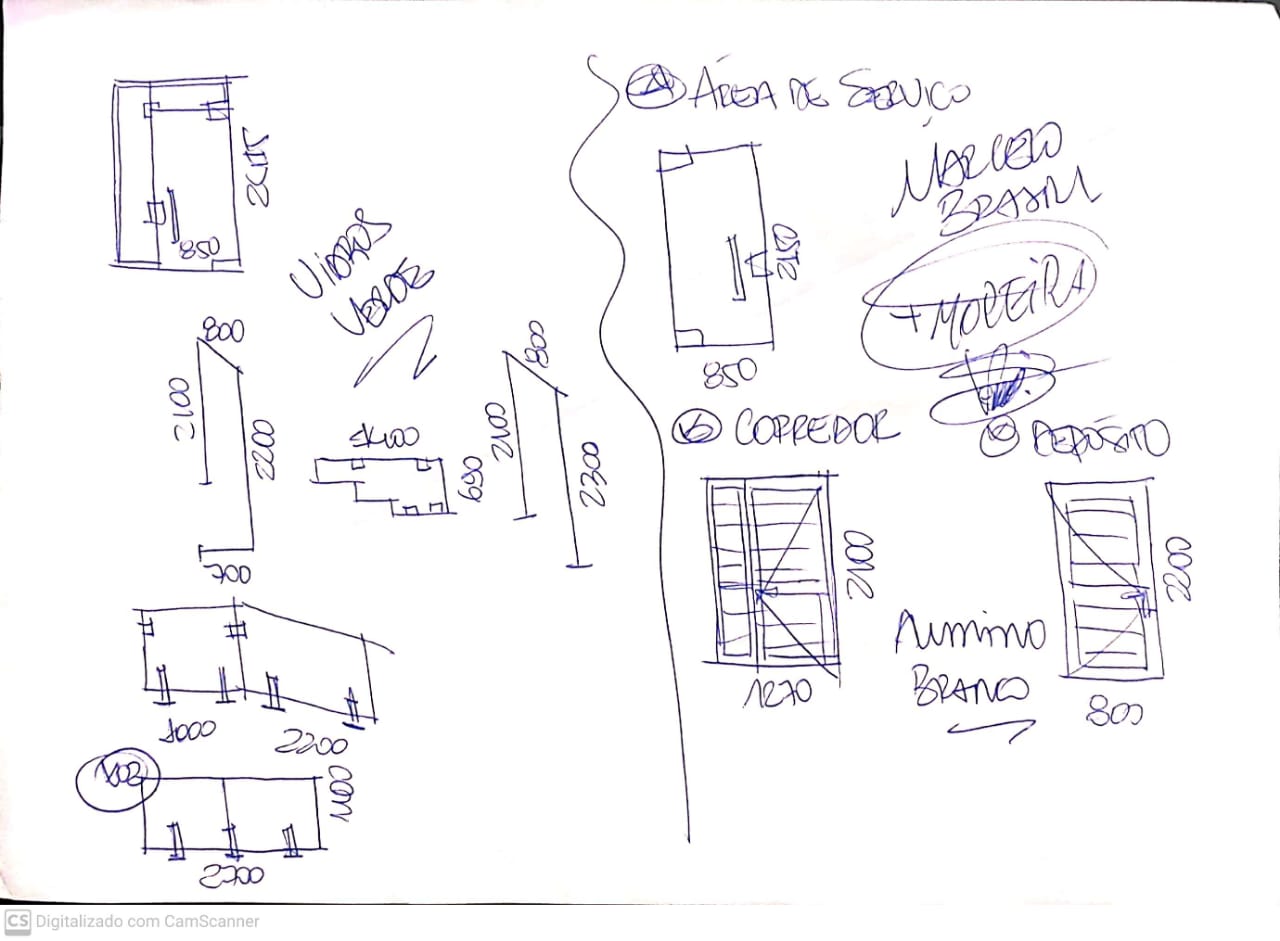 2415
850
VIDROS
VERDE
800
2100
2200
700
800
2100
2300
690
1000
2200
1100
2700
A ÁREA DE SERVIÇO
MARCELO
BRASIL
+ MOREIRA
2150
850
B CORREDOR
2100
1270
DEPÓSITO
2200
800
ALUMINIO
BRANCO
CS Digitalizado com CamScanner